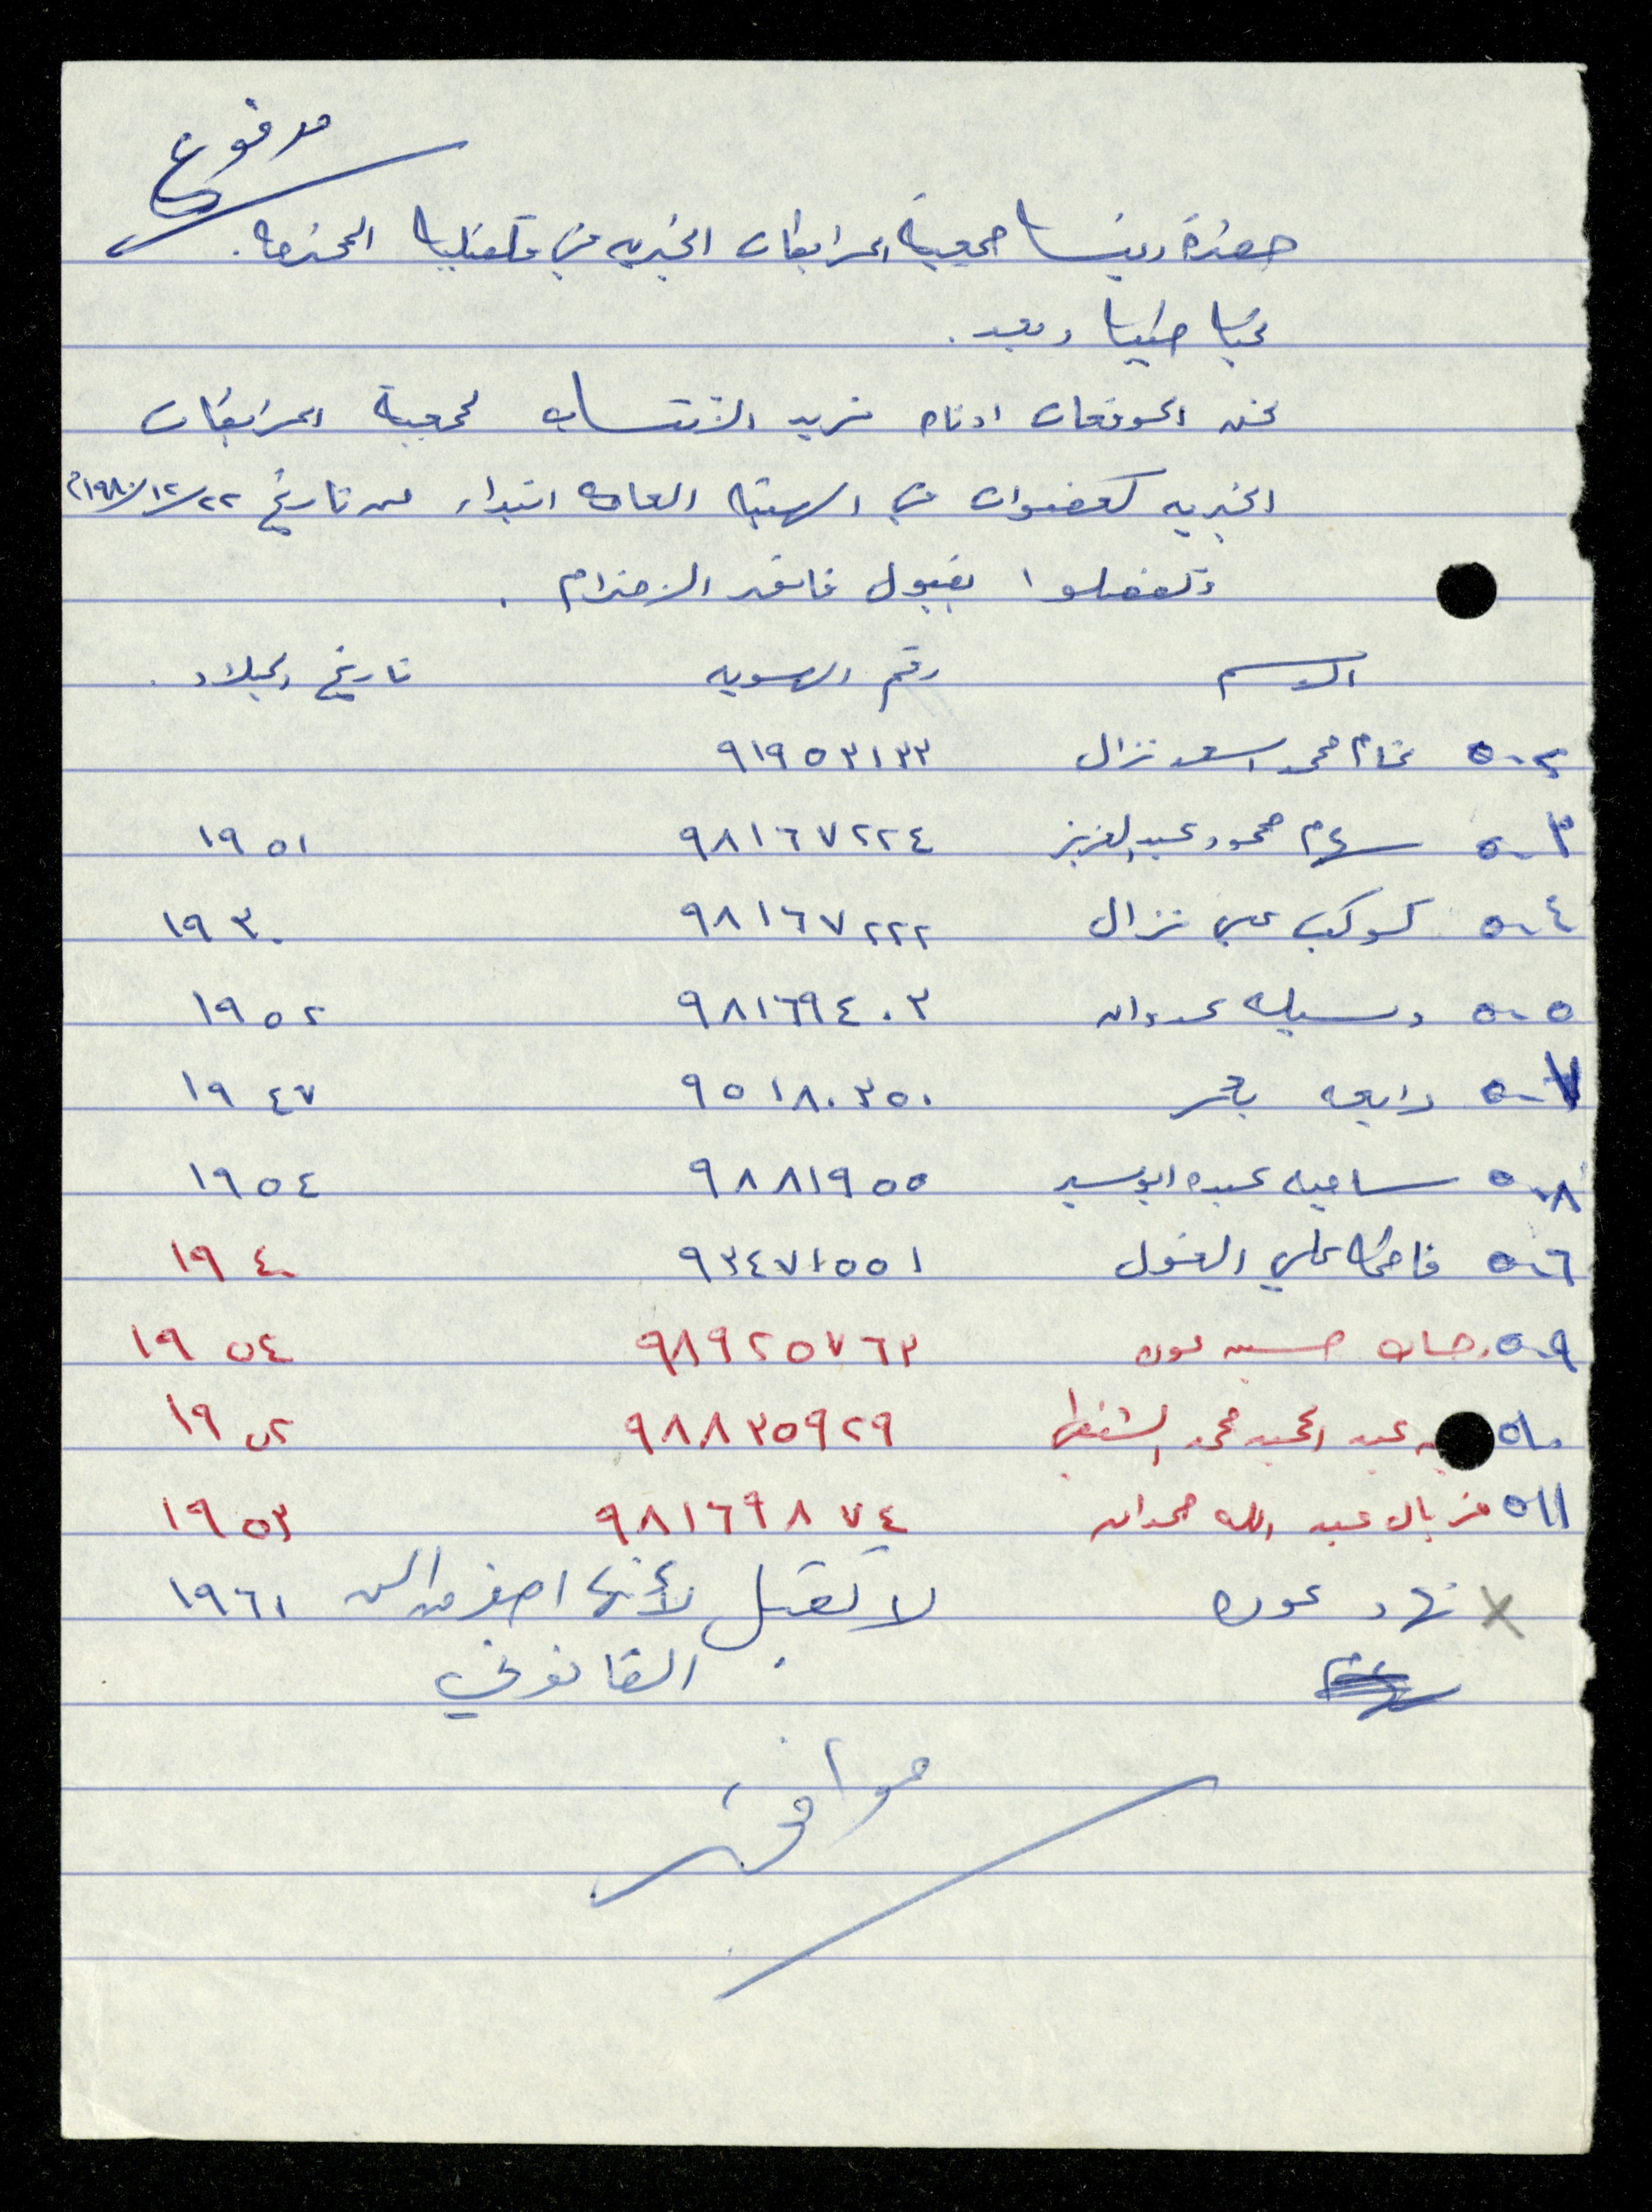 مدفوع
حضرة رئيسة جمعية المرابطات الخيرية في قلقيلية المحترمة.
تحية طيبة وبعد.
نحن الموقعات ادناه نريد الانتساب لجمعية المرابطات
الخيريه كعضوات في الهيئة العامة ابتداء من تاريخ ٢٢/١٢/١٩٨٠م
وتفضلوا بقبول فائق الاحترام.
الاسم رقم الهويه تاريخ الميلاد.
٥٠٢ ختام محمد اسعد نزال ٩١٩٥٣١٣٣
٥٠٣ سهام محمود عبد العزيز ٩٨١٦٧٢٢٤ ١٩٥١
٥٠٤ كوكب علي نزال ٩٨١٦٧٢٢٢ ١٩٣٠
٥٠٥ وسيله عدوان ٩٨١٦٩٤٠٣ ١٩٥٢
٥٠٧ رابعه ٩٥١٨٠٣٥٠ ١٩٤٧
٥٠٨ ساميه عبده ٩٨٨١٩٥٥ ١٩٥٤
٥٠٦ فاطمة علي الغول ٩٣٤٧١٥٥١ ١٩٤٠
٥٠٩ رحاب حسين عوده ٩٨٩٢٥٧٦٣ ١٩٥٤
٥١٠ عبد الحميد محمد الشنطي ٩٨٨٣٥٩٢٩ ١٩٥٢
٥١١ فريال عبد الله حمدان ٩٨١٦٩٨٧٤ ١٩٥٣
× نهاد عوده لا تقبل لأنها اصغر من السن ١٩٦١
القانوني
موافق